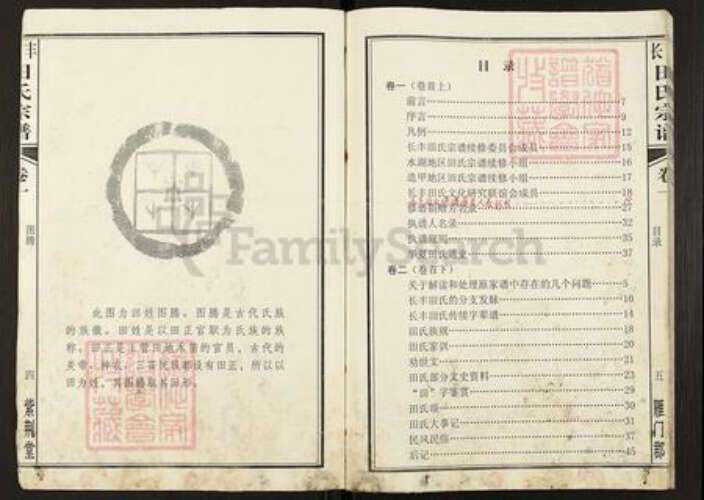 丰田氏宗谱
卷一
图腾
四
紫荆堂
此图为田姓图腾。图腾是古代氏族
的族徽。田姓是以田正官职为氏族的族
称。田正是主管田地术苗的官员,古代的
炎帝、神农、三苗氏族都设有田正,所以以
田为姓,其图腾取其田形。
目录
卷一(卷首上)
前言 7
序言 9
凡例 12
长丰田氏宗谱续修委员会成员 15
水湖地区田氏宗谱续修小组 16
造甲地区田氏宗谱续修小组 17
长丰田氏文化研究联谊会成员 18
修谱捐赠芳名录
执谱人名录 32
执谱规则 35
华夏田氏通史 37
卷二(卷首下)
关于解读和处理原家谱中存在的几个问题 5
长丰田氏的分支发脉 10
长丰田氏传续字辈谱 14
田氏族规 18
田氏家训 20
劝世文 21
田氏部分文史资料 23
“田”字鉴赏 29
田氏颂 30
田氏大事记 31
民风民俗 37
后记 45
长田氏宗谱
卷一
目录
五
雁门郡
FamilySearch